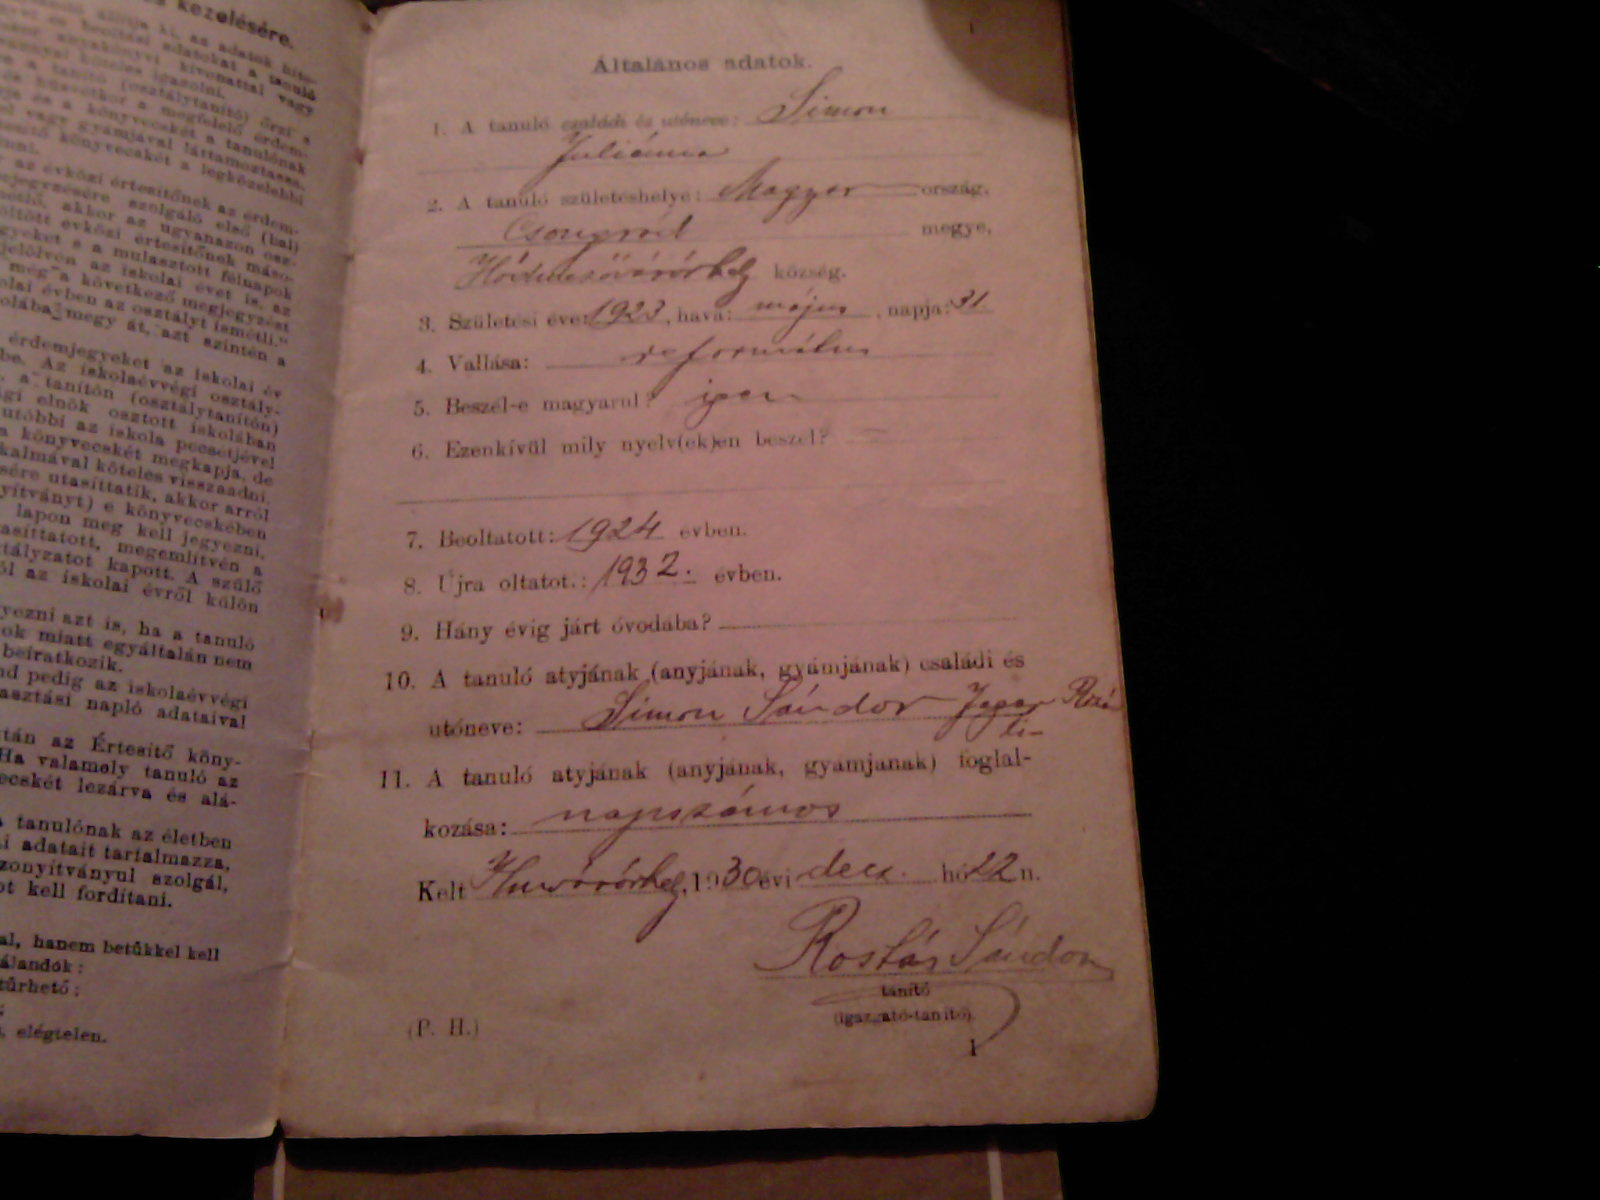 s kezelésére.
állítja ki, az adatok hite-
beoltási adatokat a tanuló
anyakönyvi kivonattal vagy
köteles igazolni.
a tanító (osztálytanító) őrzi s
húsvétkor a megfelelő érdem-
és a könyvecskét a tanulónak
vagy gyámjával láttamoztassa,
könyvecskét a legközelebbi
az évközi értesítőnek az érdem-
bejegyzésére szolgáló első (bal)
akkor az ugyanazon osz-
töltött évközi értesítőnek máso-
jegyeket s a mulasztott félnapok
jelölvén az iskolai évet is, az
még a következő megjegyzést
iskolai évben az osztályt ismétli."
iskolába megy át, azt szintén a
érdemjegyeket az iskolai év
be. Az iskolaévvégi osztály-
a tanítón (osztálytanítón)
elnök osztott iskolában
utóbbi az iskola pecsétjével
a könyvecskét megkapja, de
alkalmával köteles visszaadni.
utasíttatik, akkor arról
e könyvecskében
lapon meg kell jegyezni,
utasíttatott, megemlítvén a
osztályzatot kapott. A szülő
az iskolai évről külön
jegyezni azt is, ha a tanuló
okok miatt egyáltalán nem
beiratkozik.
pedig az iskolaévvégi
mulasztási napló adataival
után az Értesítő köny-
Ha valamely tanuló az
lezárva és alá-
tanulónak az életben
adatait tartalmazza,
bizonyítványul szolgál,
kell fordítani.
hanem betűkkel kell
tűrhető;
elégtelen.
Általános adatok.
1. A tanuló családi és utóneve: Simon
Juliánna
2. A tanuló születéshelye: Magyar ország,
Csongrád megye,
Hódmezővásárhely község.
3. Születési éve: 1923, hava: május, napja: 31
4. Vallása: református
5. Beszél-e magyarul? igen
6. Ezenkívül mily nyelv(ek)en beszél? —
7. Beoltatott: 1924 évben.
8. Újra oltatot.: 1932. évben.
9. Hány évig járt óvodába?
10. A tanuló atyjának (anyjának, gyámjának) családi és
utóneve: Simon Sándor
11. A tanuló atyjának (anyjának, gyámjának) foglal-
kozása: napszámos
Kelt Hmvásárhely, 1930 évi decz. hó 22 n.
Rostás Sándor
tanító
(igazgató-tanító).
(P. H.)
1